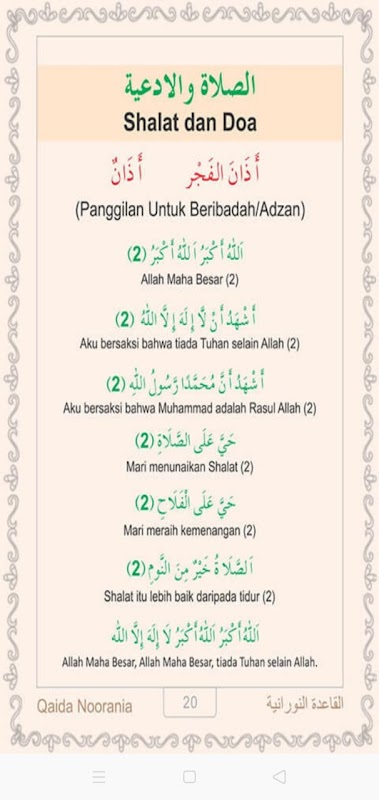 الصلاة والادعية
Shalat dan Doa
أَذَانَ الفَجْر أَذَانٌ
(Panggilan Untuk Beribadah/Adzan)
اَللهُ أَكْبَرُ اَللهُ أَكْبَرُ (2)
Allah Maha Besar (2)
أَشْهَدُ أَنْ لَّا إِلَهَ إِلَّا اللهُ (2)
Aku bersaksi bahwa tiada Tuhan selain Allah (2)
أَشْهَدُ أَنَّ مُحَمَّدًا رَّسُولُ اللهِ (2)
Aku bersaksi bahwa Muhammad adalah Rasul Allah (2)
حَيَّ عَلَى الصَّلَاةِ (2)
Mari menunaikan Shalat (2)
حَيَّ عَلَى الْفَلَاحِ (2)
Mari meraih kemenangan (2)
اَلصَّلَاةُ خَيْرٌ مِنَ النَّومِ (2)
Shalat itu lebih baik daripada tidur (2)
اَللهُ أَكْبَرُ اَللهُ أَكْبَرُ لَا إِلَهَ إِلَّا الله
Allah Maha Besar, Allah Maha Besar, tiada Tuhan selain Allah.
Qaida Noorania 20 القاعدة النورانية